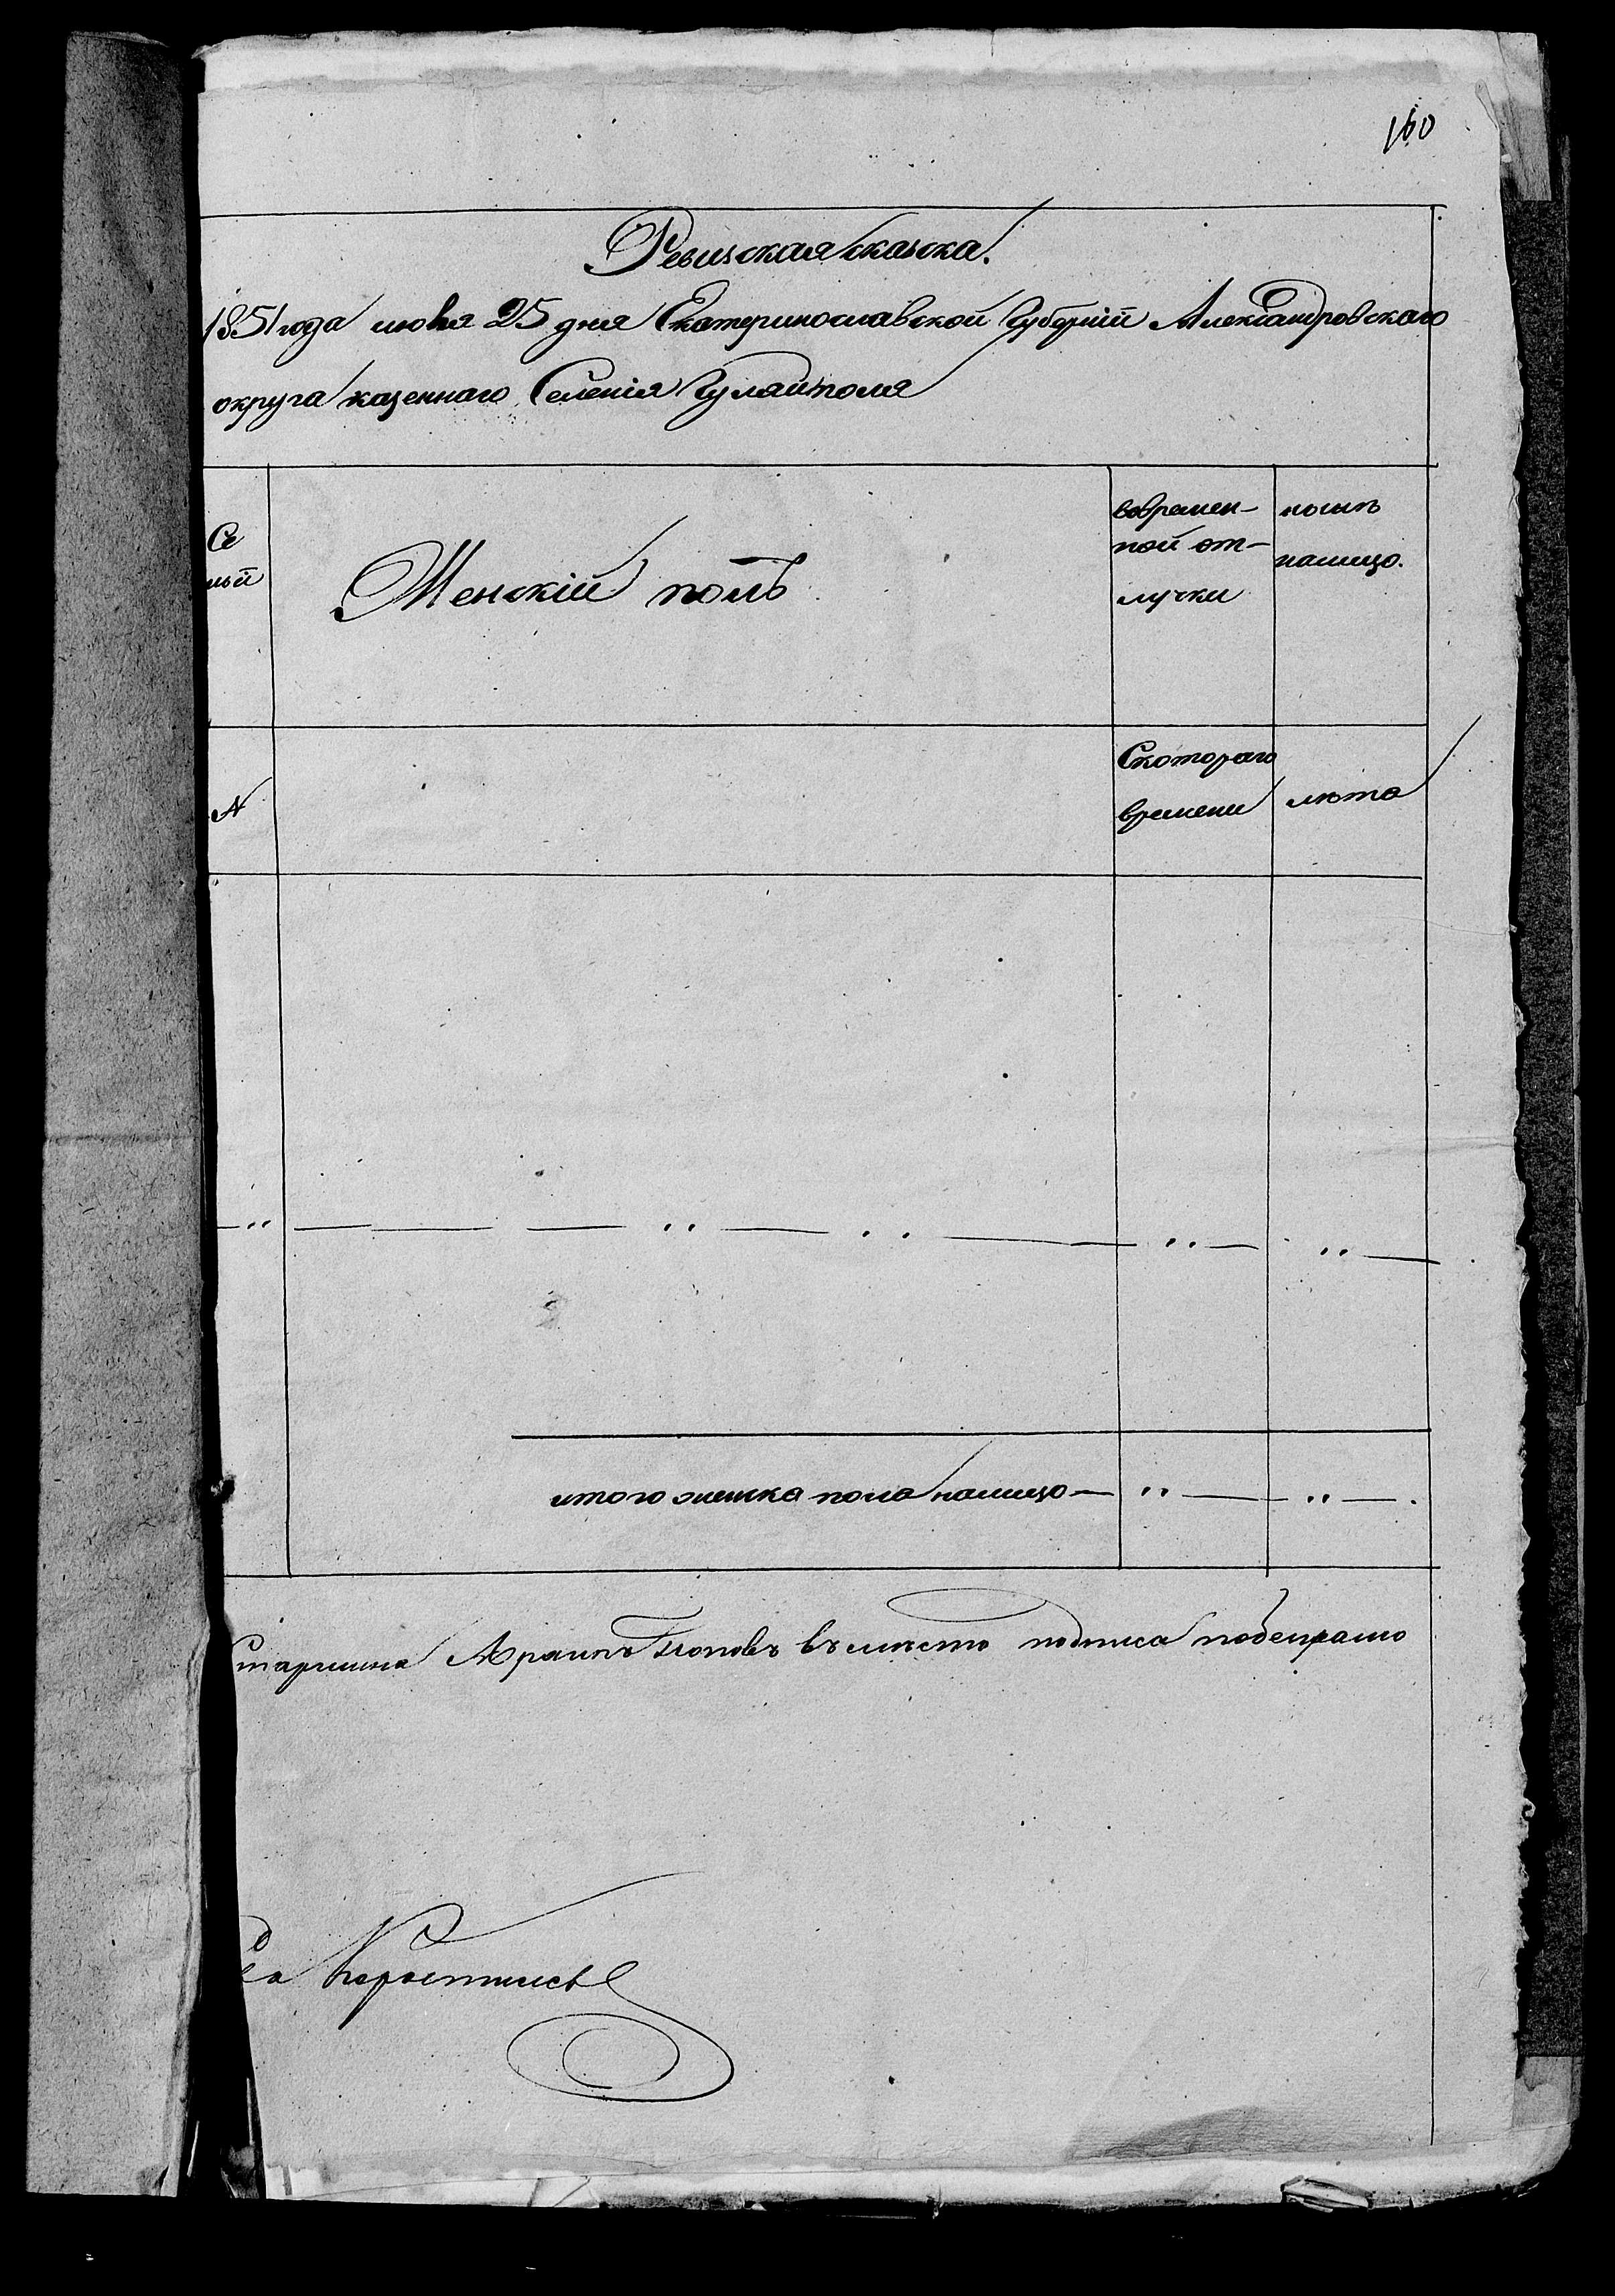 160
Ревизская сказка.
1851 года июня 25 дня Екатеринославской Губернїй Александровскаго
округа казеннаго Селенія Гуляйполя
Се
мьй
Женскій полъ
вовремен-
ной от-
лучки
ноынѣ
налицо.
№
Скотораго
времени
лѣта
— " — — — " — " — " — " —
итого женска пола налицо — " — " — .
Старшина Поповъ вместо подписа